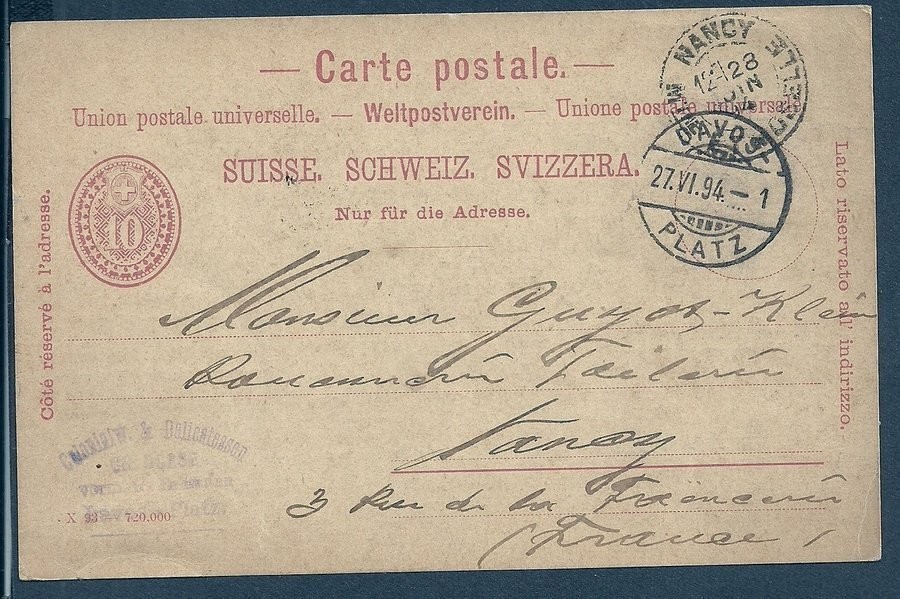 Carte postale.
Union postale universelle. — Weltpostverein. — Unione postale universale
SUISSE. SCHWEIZ. SVIZZERA.
Nur für die Adresse.
Côté réservé à l'adresse.
Lato riservato all' indirizzo.
10
NANCY
12 28
JUIN
DAVOS-
27.VI.94.— 1
PLATZ
Monsieur Guyot-Klein
Nancy
3 Rue de la Faïencerie
(France)
Colonialw. & Delicatessen
Platz
X 93 — 720.000